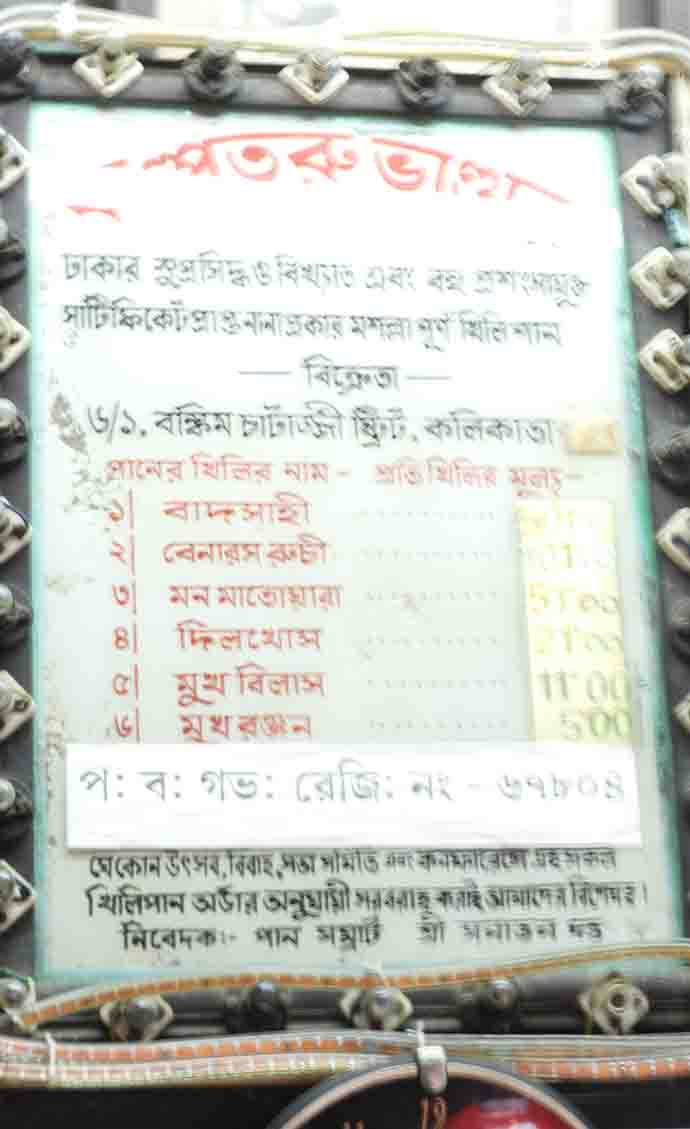 ঢাকার সুপ্রসিদ্ধ ও বিখ্যাত এবং বহু প্রশংসাযুক্ত
সার্টিফিকেট প্রাপ্ত নানা প্রকার মশল্লা পূর্ণ খিলি পান
— বিক্রেতা —
৬/১, বঙ্কিম চাটার্জ্জী ষ্ট্রিট, কলিকাতা
পানের খিলির নাম - প্রতি খিলির মূল্য -
১| বাদসাহী
২| বেনারস রুচী
৩| মন মাতোয়ারা 51'00
৪| দিলখোস 21'00
৫| মুখ বিলাস 11'00
৬| মুখ রঞ্জন 5'00
প: ব: গভ: রেজি: নং - ৬৭৮০৪
যে কোন উৎসব, বিবাহ, সভা সমিতি এবং কনফারেন্সে এই সকল
খিলিপান অর্ডার অনুযায়ী সরবরাহ করাই আমাদের বিশেষত্ব।
নিবেদক:- পান সম্রাট শ্রী সনাতন দত্ত
19